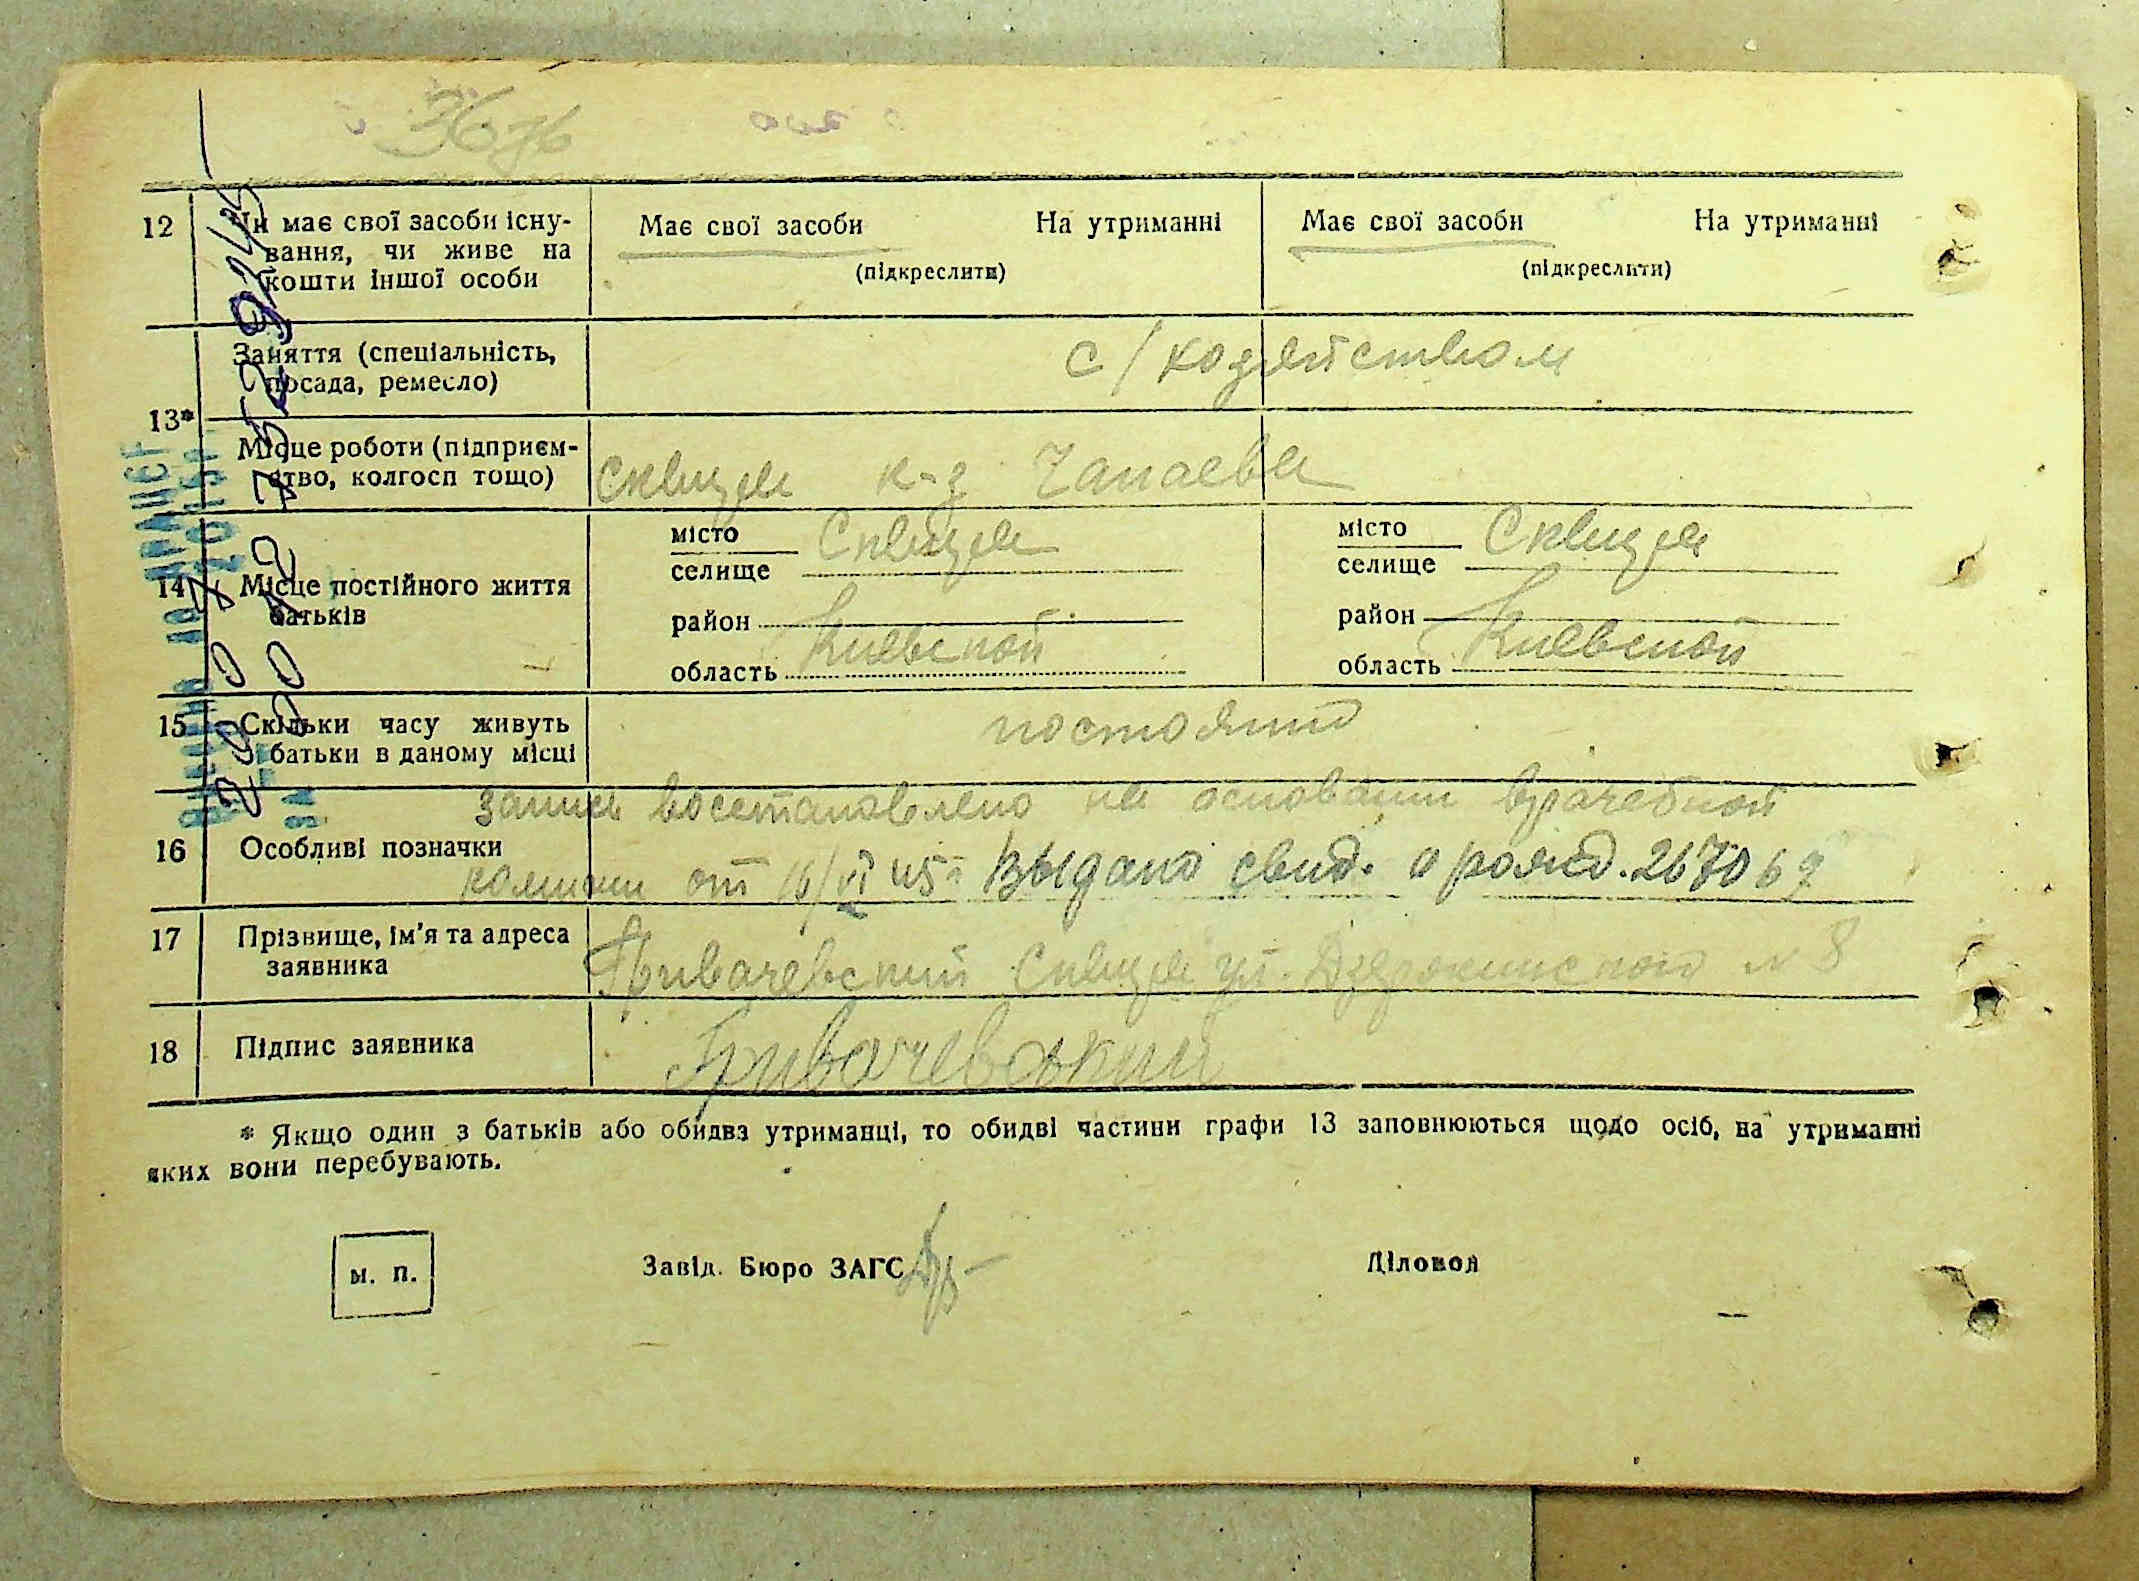 3676
12 Чи має свої засоби існу-
вання, чи живе на
кошти іншої особи
Має свої засоби На утриманні
(підкреслити)
Має свої засоби На утриманні
(підкреслити)
13*
Заняття (спеціальність,
посада, ремесло)
с/хозяйством
Місце роботи (підприєм-
ство, колгосп тощо)
Сквиря к-з Чапаева
14 Місце постійного життя
батьків
місто Сквиря
селище
район
область Киевской
місто Сквиря
селище
район
область Киевской
15 Скільки часу живуть
батьки в даному місці
постоянно
16 Особливі позначки
запись восстановлено на основании врачебной
комисии от 16/VI 45 г. Выдано свид. о рожд. 267069
17 Прізвище, ім'я та адреса
заявника
Привачевский Сквиря ул. Дзержинского № 8
18 Підпис заявника
Привачевский
* Якщо один з батьків або обидва утриманці, то обидві частини графи 13 заповнюються щодо осіб, на утриманні
яких вони перебувають.
м. п.
Завід. Бюро ЗАГС
Діловод